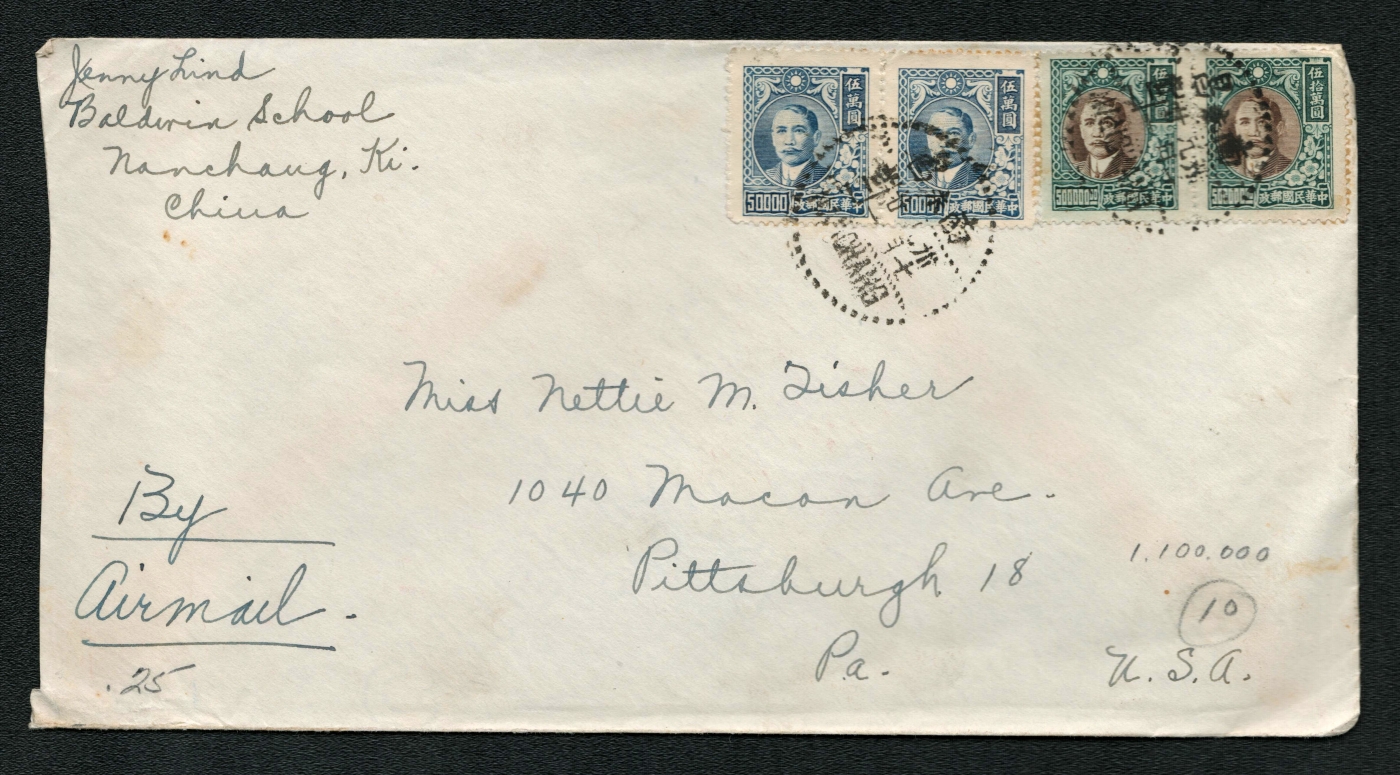 Jenny Lind
Baldwin School
Nanchang, Ki.
China
伍萬圓
50000
政郵國民華中
伍萬圓
500
政郵國民華中
伍
500000.00
政郵國民華中
伍拾萬圓
政郵國民華中
NANCHANG
Miss Nettie M. Fisher
1040 Macon Ave.
Pittsburgh 18
Pa.
U.S.A.
By
Airmail.
.25
1.100.000
10